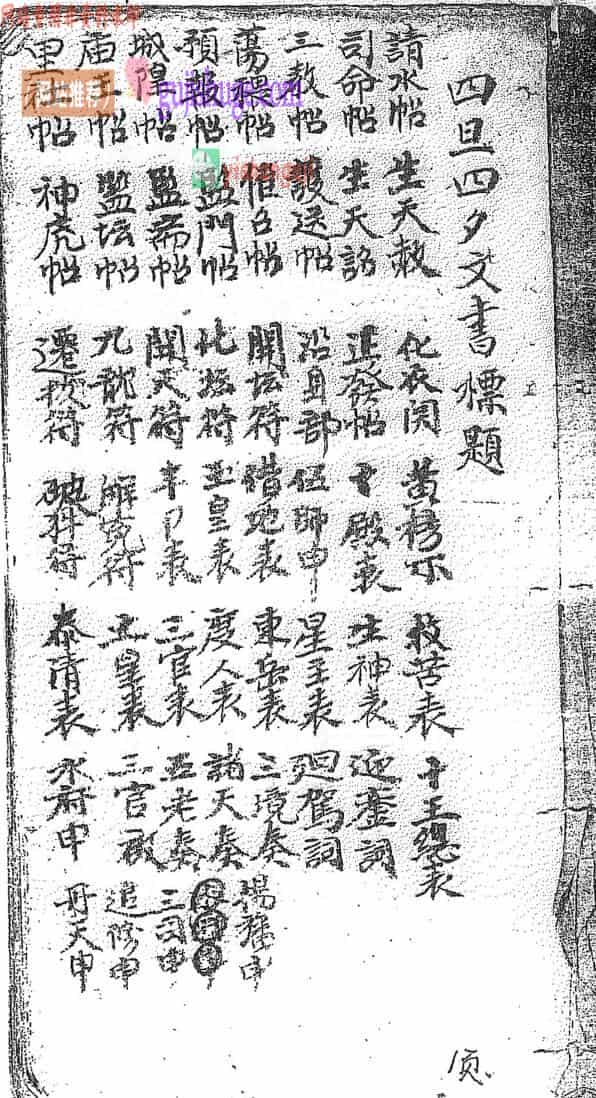 四旦四夕文書標題
請水帖 生天敕 化衣関 黄榜示 救苦表 十王總表
司命帖 生天誥 進發帖 十殿表 生神表 迎鑾詞
三教帖 護送帖 伍師申 星主表 迴駕詞
蕩穢帖 催召帖 開坛符 借地表 東岳表 三境奏 申
預報帖 監門帖 化坛符 玉皇表 度人表 諸天奏
城隍帖 監齋帖 開天符 表 三官表 五老奏 三司申
庙王帖 監坛帖 九龍符 解冤符 玉皇表 三官 追修申
里社帖 神虎帖 遷拔符 符 泰清表 水府申 丹天申
页